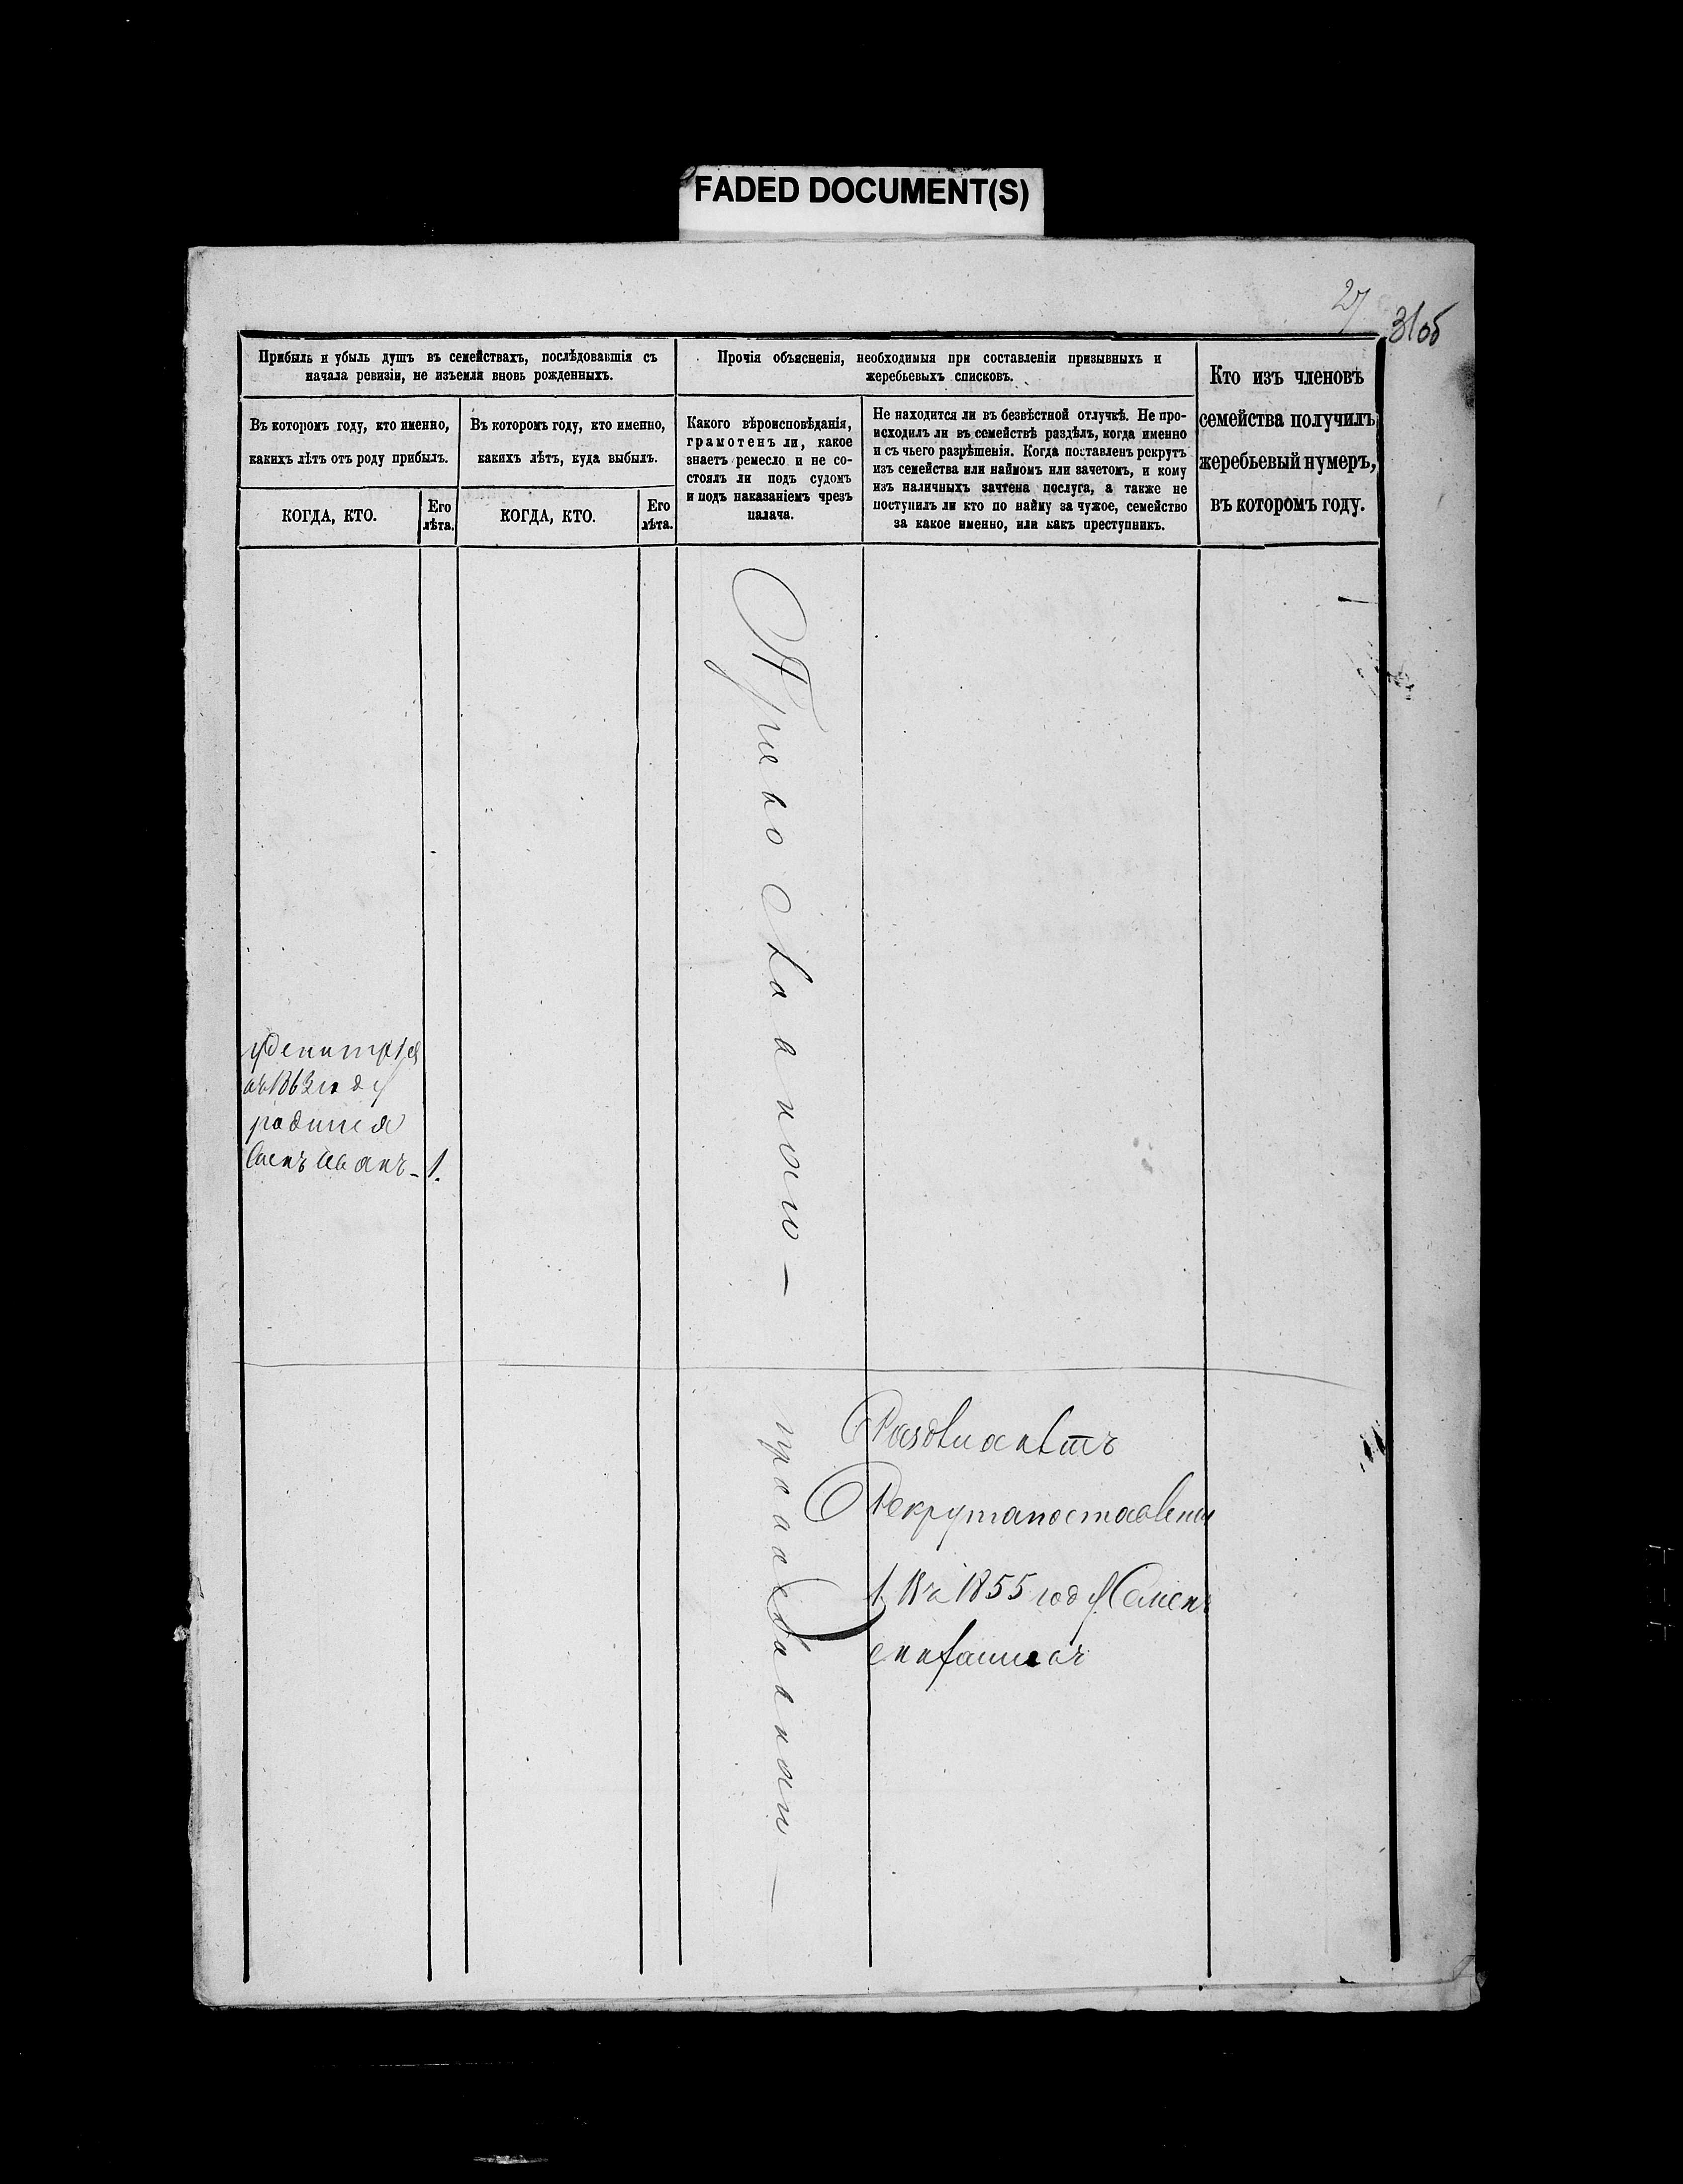 FADED DOCUMENT(S)
27
31об
Прибыль и убыль душъ въ семействахъ, послѣдовавшія съ
начала ревизіи, не изъемля вновь рожденныхъ.
Въ которомъ году, кто именно,
какихъ лѣтъ отъ роду прибылъ.
КОГДА, КТО.
Его
лѣта.
Въ которомъ году, кто именно,
какихъ лѣтъ, куда выбылъ.
КОГДА, КТО.
Его
лѣта.
Прочія объясненія, необходимыя при составленіи призывныхъ и
жеребьевыхъ списковъ.
Какого вѣроисповѣданія,
грамотенъ ли, какое
знаетъ ремесло и не со-
стоялъ ли подъ судомъ
и подъ наказаніемъ чрезъ
палача.
Не находится ли въ безвѣстной отлучкѣ. Не про-
исходилъ ли въ семействѣ раздѣлъ, когда именно
и съ чьего разрѣшенія. Когда поставленъ рекрутъ
изъ семейства или наймомъ или зачетомъ, и кому
изъ наличныхъ зачтена послуга, а также не
поступилъ ли кто по найму за чужое, семейство
за какое именно, или какъ преступникъ.
Кто изъ членовъ
семейства получилъ
жеребьевый нумеръ,
въ которомъ году.
удемитрія
въ 1863 году
родился
сынъ Иванъ - 1.
Рекрута поставлена
1 Въ 1855 году Семенъ